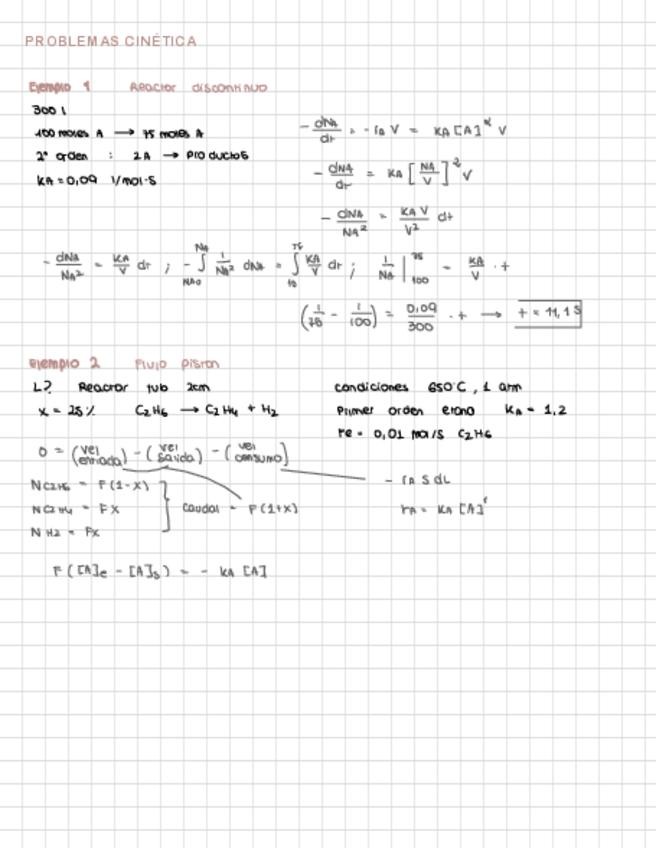 PROBLEMAS CINÉTICA
Ejemplo 1 Reactor discontinuo
300 l
100 moles A → 75 moles A
2º orden : 2A → Productos
KA = 0,09 l/mol·s
- dNA/dt = - rA V = KA [A]^α V
- dNA/dt = KA [NA/V]^2 V
- dNA/NA^2 = KA V/V^2 dt
- dNA/NA^2 = KA/V dt ; - ∫ 1/NA^2 dNA = ∫ KA/V dt ; 1/NA | 75 100 = KA/V · t
(1/75 - 1/100) = 0,09/300 · t → t = 11,1 s
Ejemplo 2 Flujo piston
L? Reactor tub 2cm
x = 25% C2H6 → C2H4 + H2
condiciones 650°C, 1 atm
Primer orden etano KA = 1,2
Fe = 0,01 mol/s C2H6
0 = (vel entrada) - (vel salida) - (vel consumo)
- rA S dL
rA = KA [A]^1
N C2H6 = F(1-x)
N C2H4 = Fx
N H2 = Fx
caudal = F(1+x)
F([A]e - [A]s) = - KA [A]